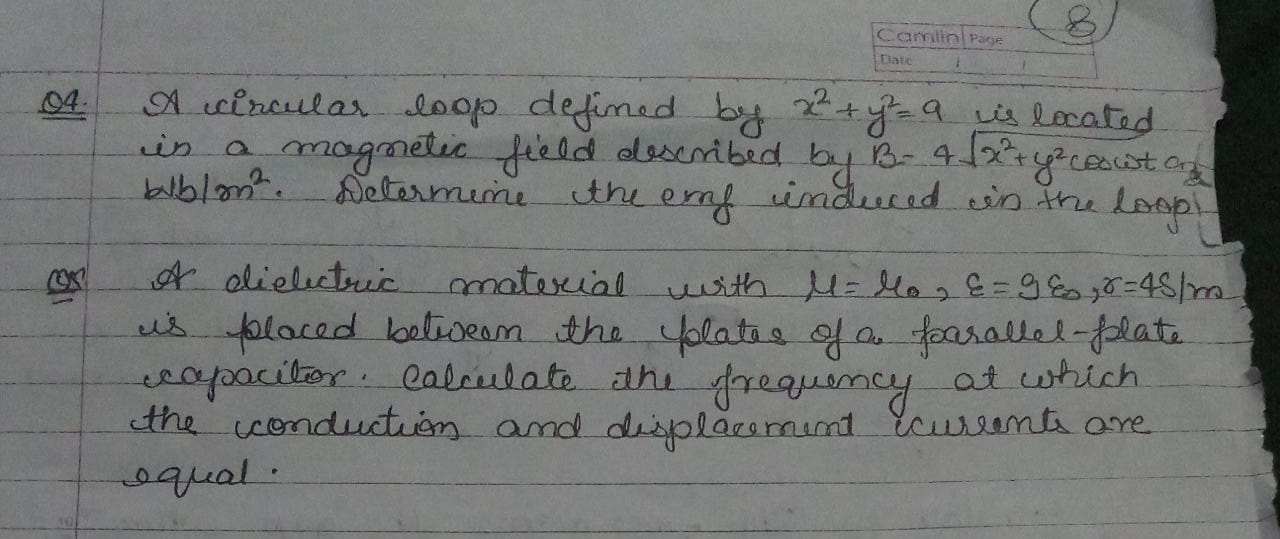 8
Camlin Page
Date / /
Q4. A circular loop defined by x²+y²=9 is located
in a magnetic field described by B= 4√x²+y² cosωt az
wb/m². Determine the emf induced in the loop.
Q5 A dielectric material with μ=μ0, ε=9ε0, σ=4S/m
is placed between the plates of a parallel-plate
capacitor. Calculate the frequency at which
the conduction and displacement currents are
equal.